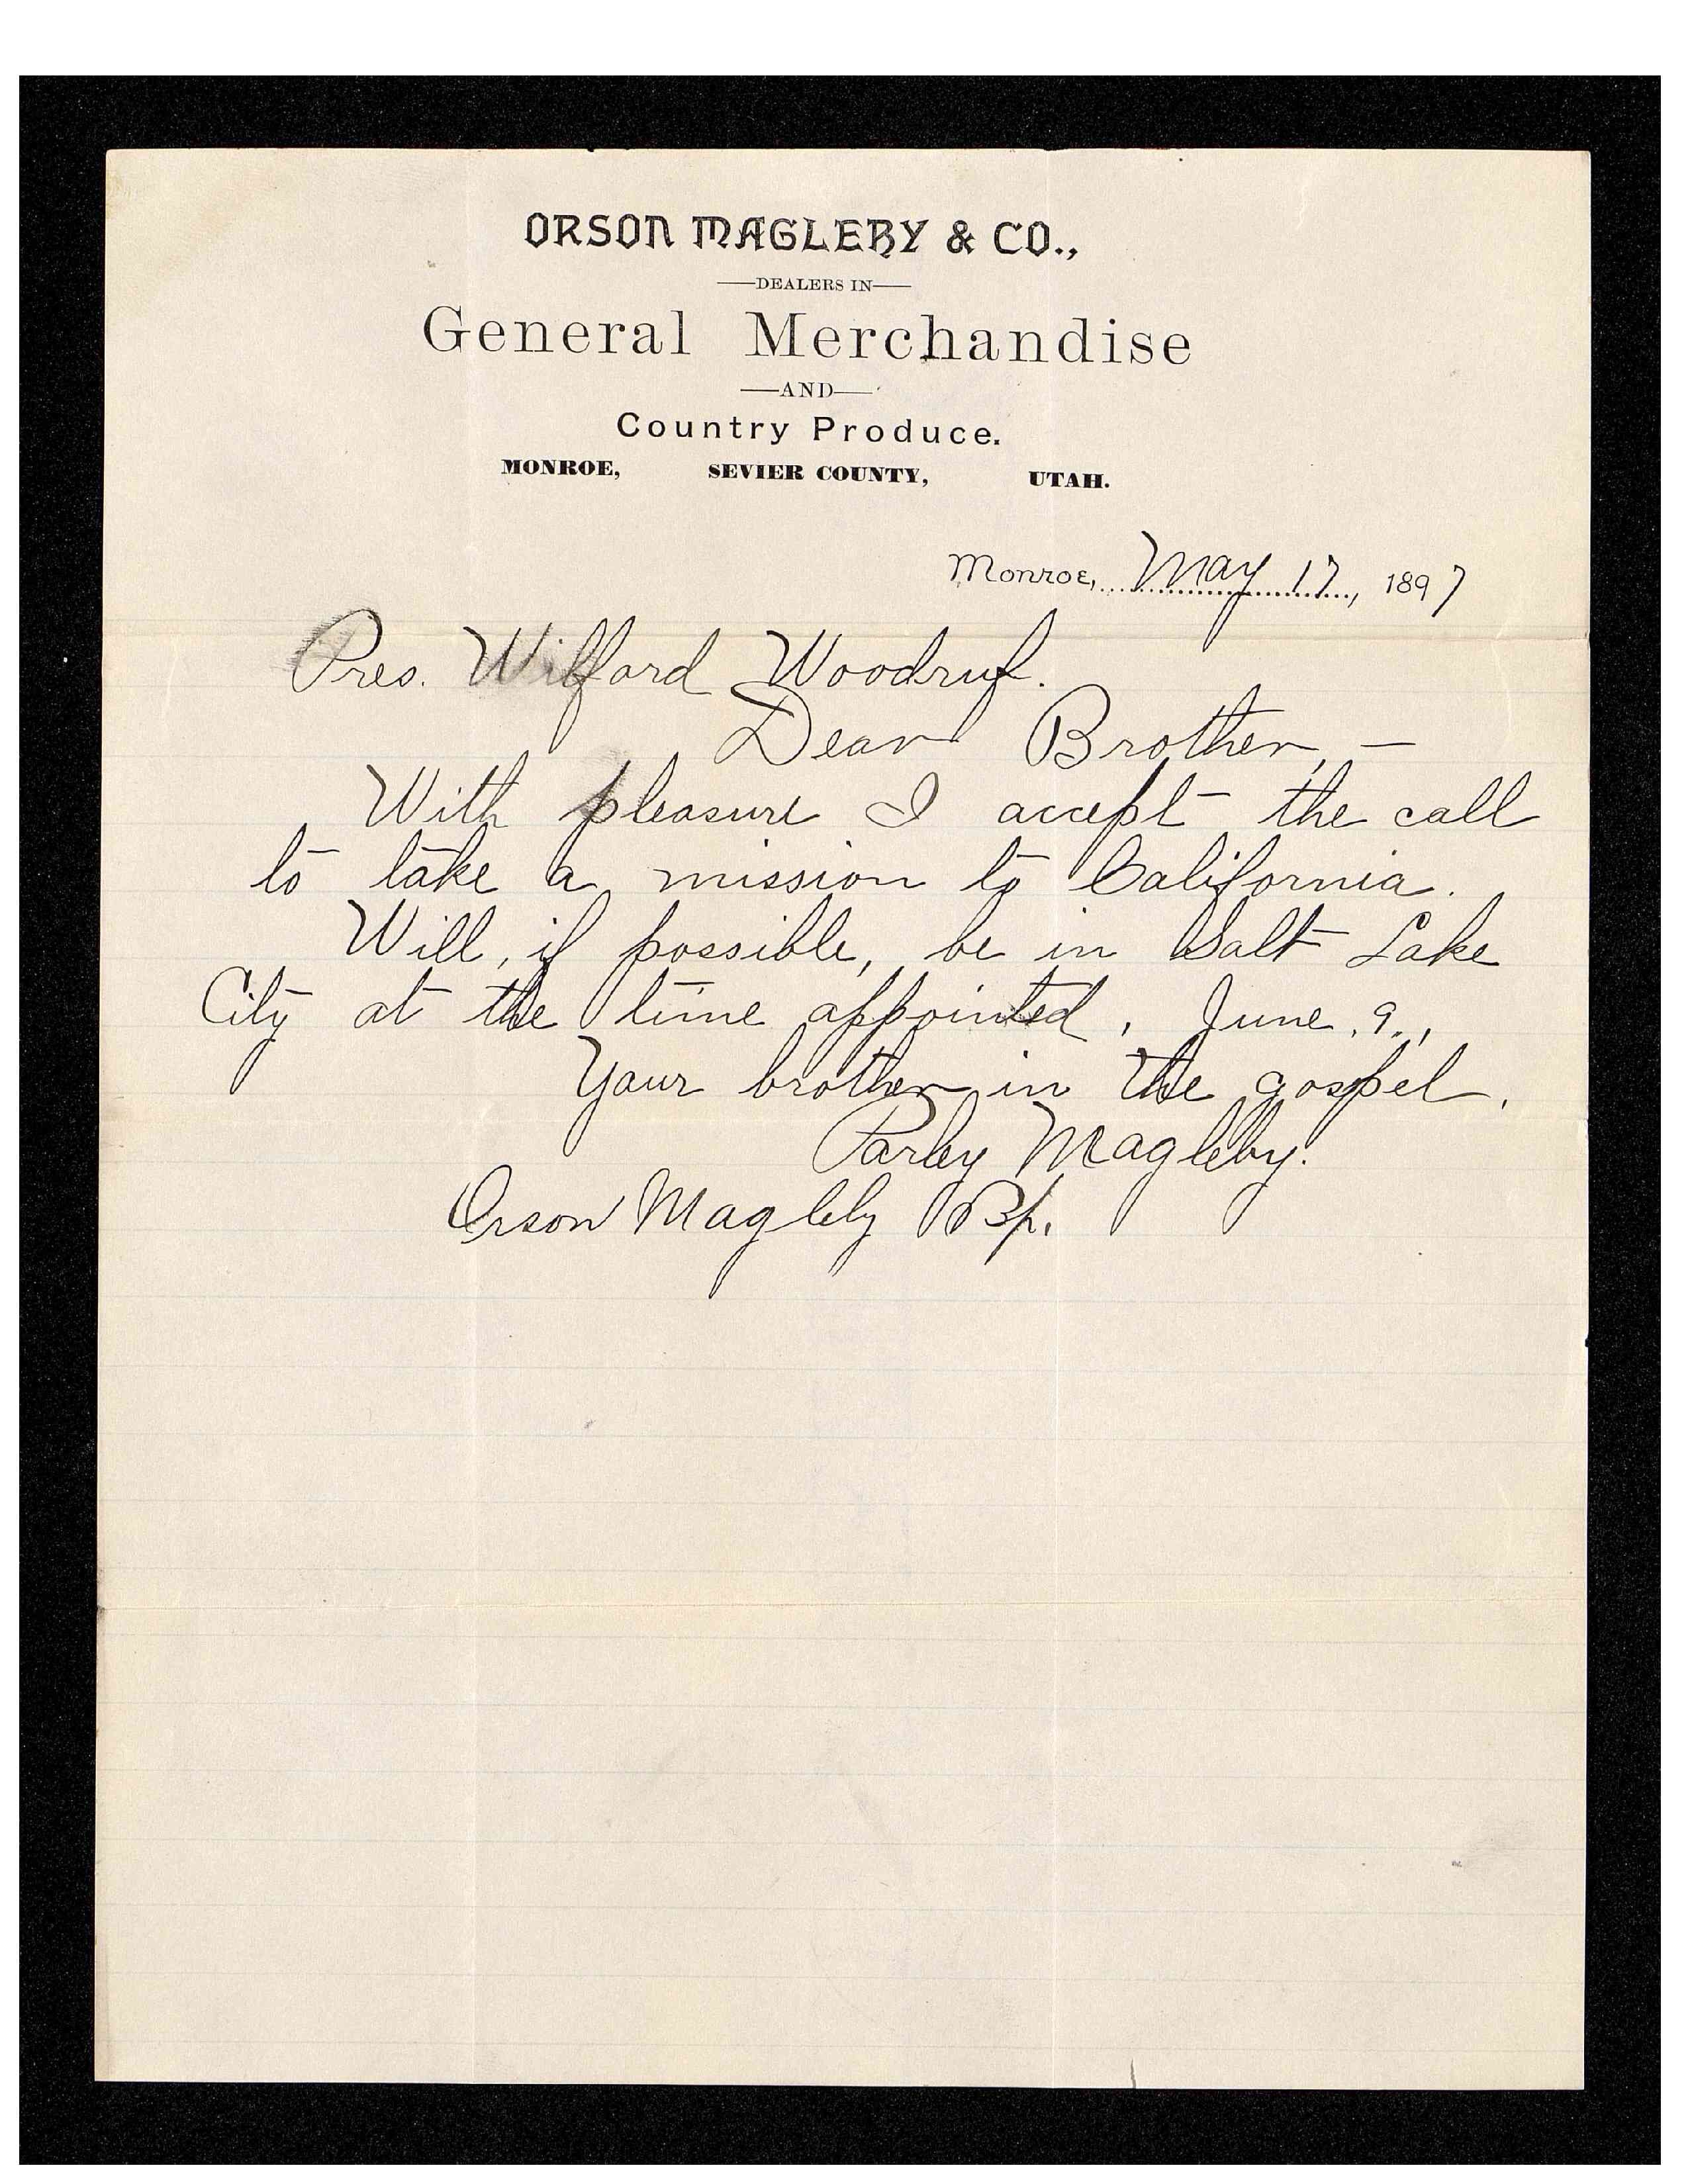 ORSON MAGLEBY & CO.,
DEALERS IN
General Merchandise
AND
Country Produce.
MONROE, SEVIER COUNTY, UTAH.
Monroe, May 17, 1897
Pres. Wilford Woodruf.
Dear Brother, —
With pleasure I accept the call
to take a mission to California.
Will, if possible, be in Salt Lake
City at the time appointed, June, 9.,
Your brother in the gospel,
Parley Magleby.
Orson Magleby Bp.